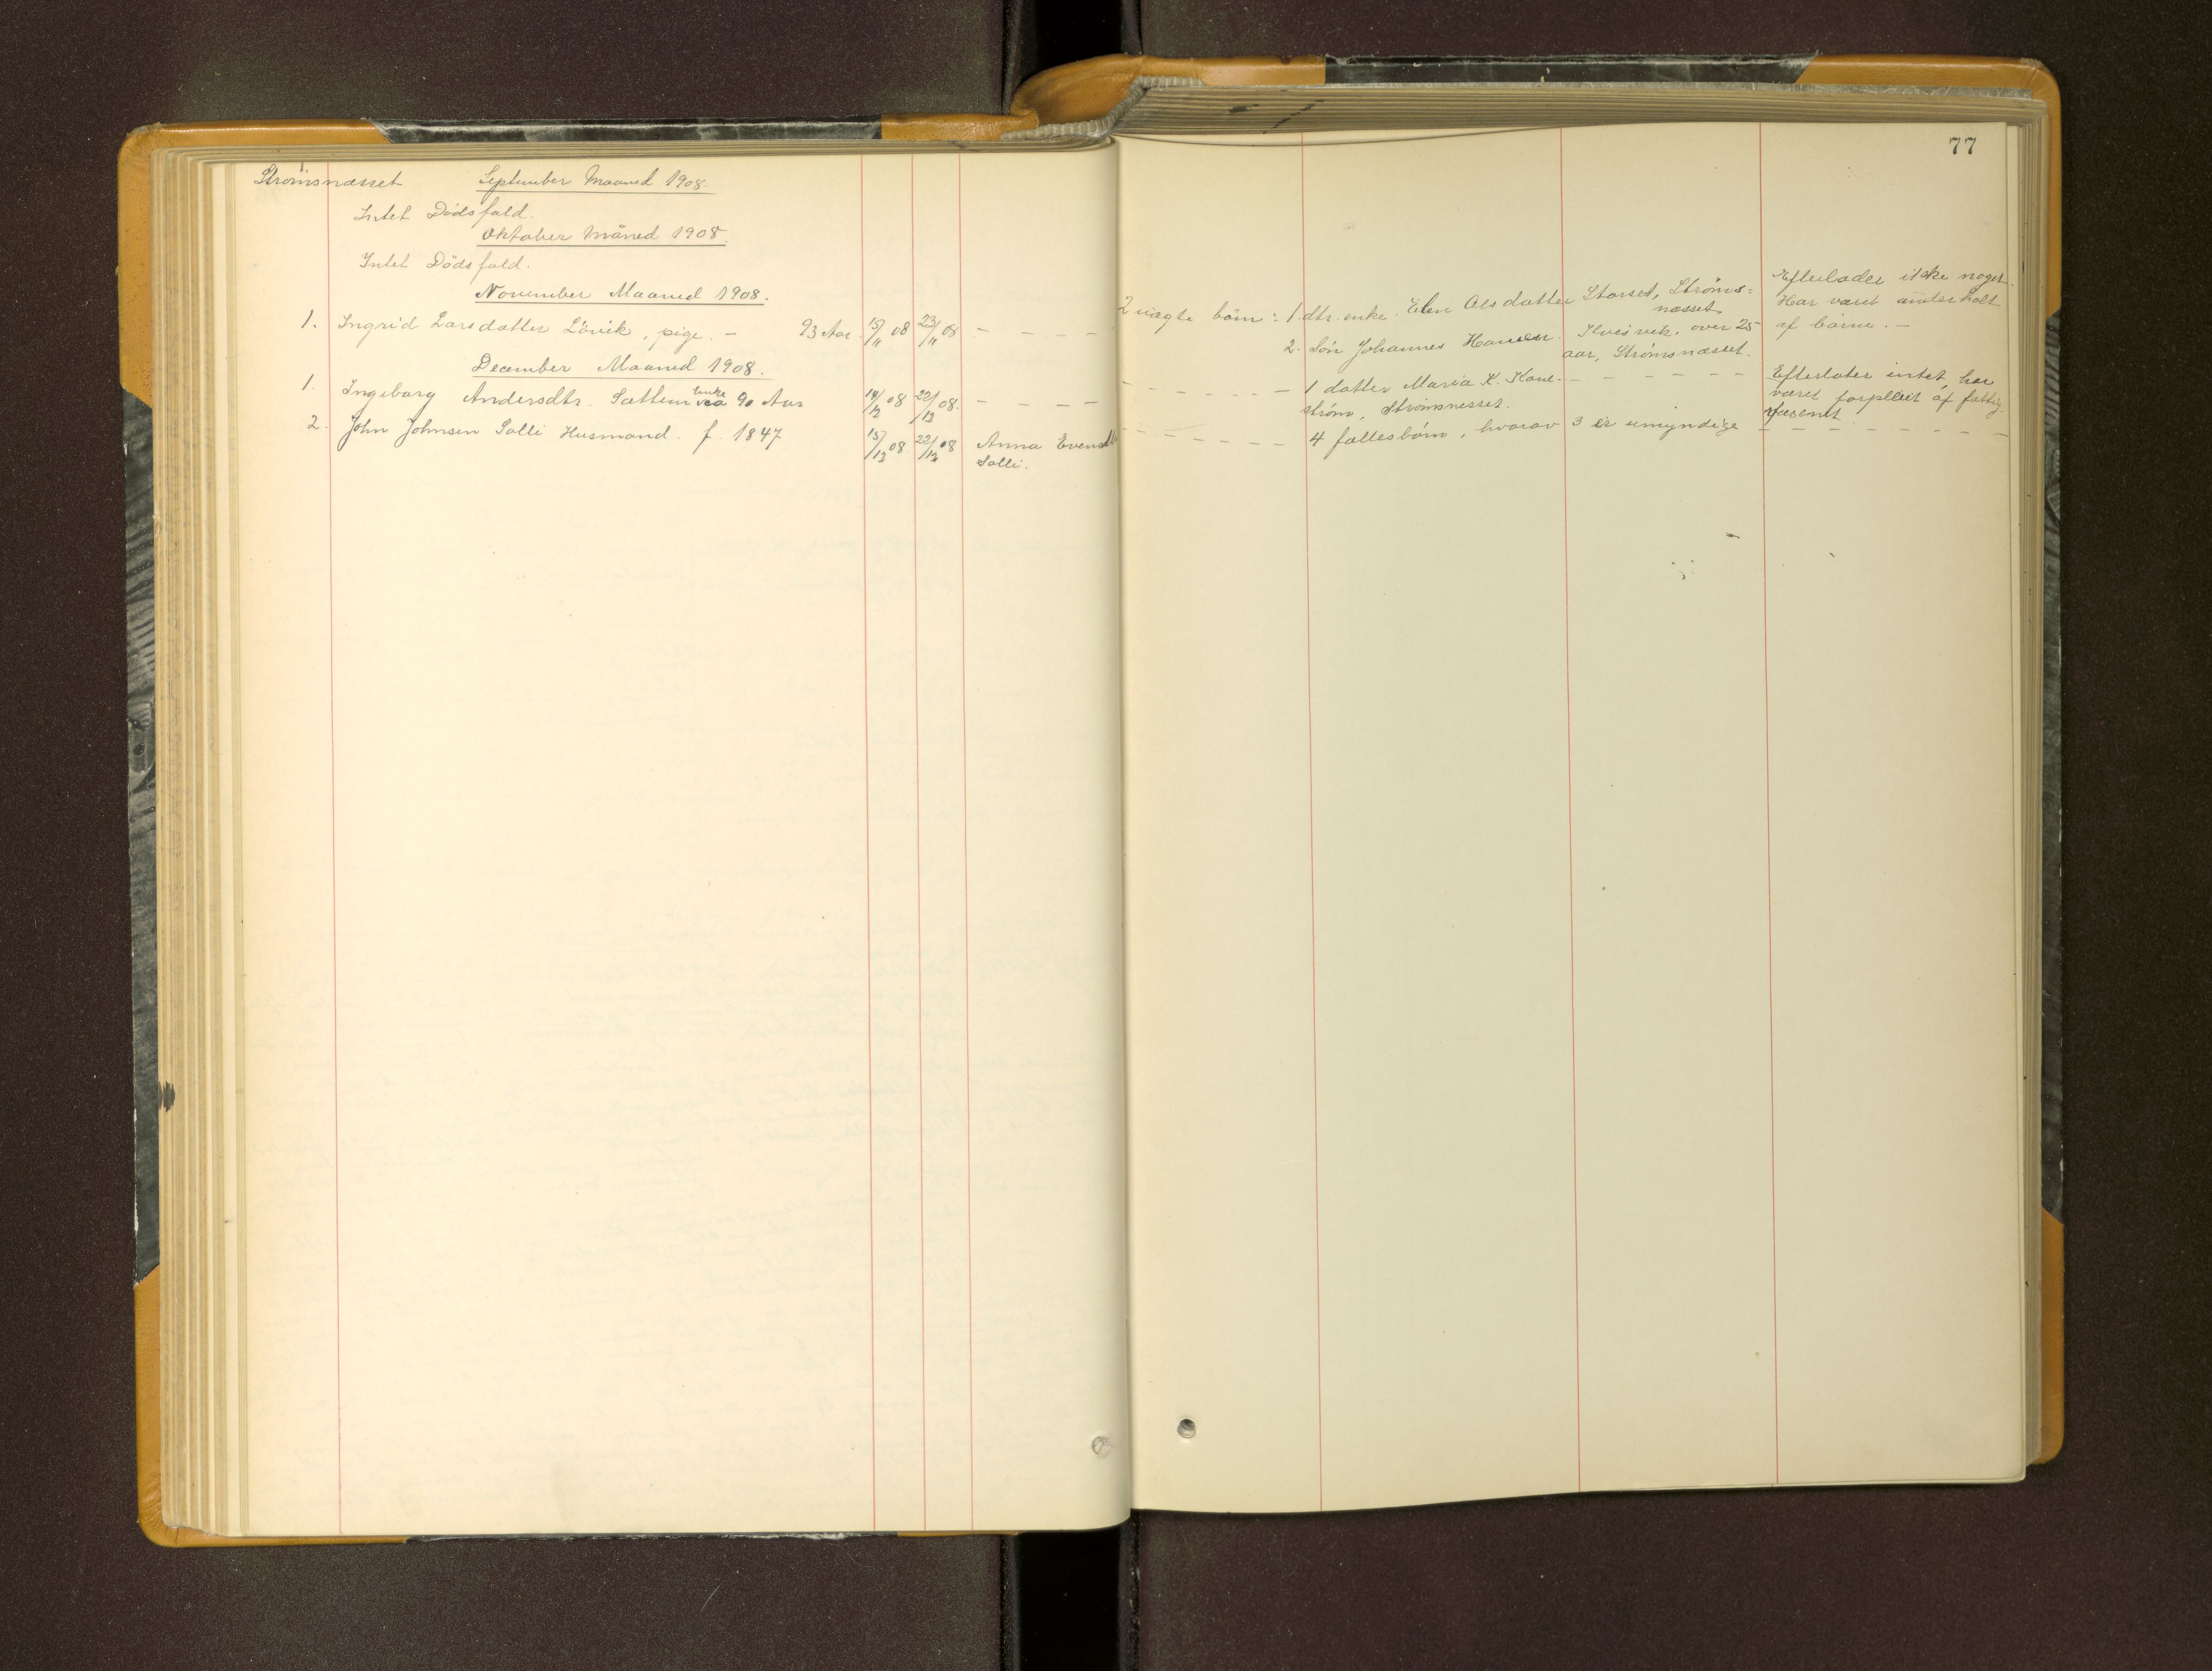 77
Strømsnæsset September Maaned 1908.
Intet Dödsfald.
Oktober Måned 1908.
Intet Dödsfald.
November Maaned 1908.
1. Ingrid Larsdatter Lövik, pige. — 93 Aar. 15/11 08 23/11 08 — — — — —
2 uægte börn: 1. dtr. enke. Elen Olsdatter Storset, Ströms=
næsset
2. Sön Johannes Hansen. Ilvisvik, over 25
aar, Strømsnæsset.
Efterlader ikke noget.
Har været underholt
af börne. —
December Maaned 1908.
1. Ingeborg Andersdtr. Sættem Enke 90 Aar 14/12 08 22/12 08. — — — —
— — — — — — 1 datter Maria K.
strøm, Strømsnesset. — — — — — —
Efterlater intet, har
været forpleiet af fattig
væsenet
2. John Johnsen Solli Husmand. f. 1847 15/12 08 22/12 08 Anna Evensdtr
Solli.
— — — — — — 4 fællesbørn, hvorav 3 er umyndige — — — — — — —